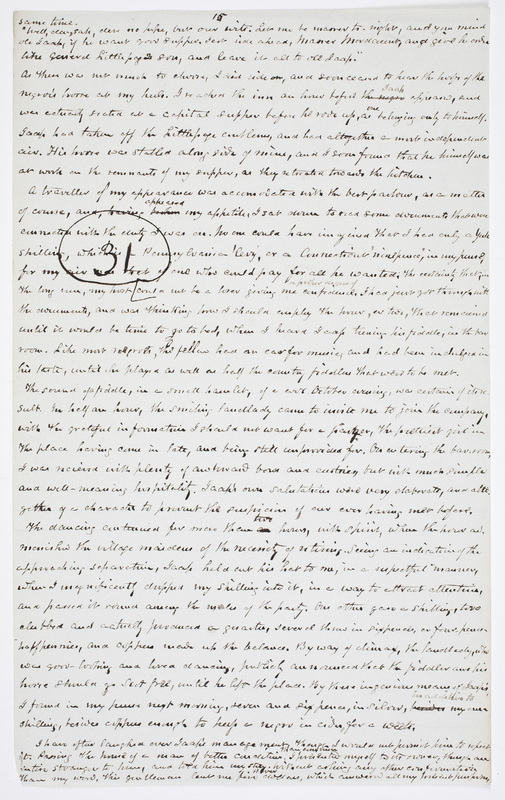 15
same time.
"Well, den, sah, dere no hope, but our wits. Let me be master to-night, and you mind
ole Jaap, if he want good supper. Jest ride ahead, Masser Mordaunt, and give he order
like General Littlepage son, and leave it all to ole Jaap."
As there was not much to choose, I did ride on, and soon ceased to hear the hoofs of the
negro's horse at my heels. I reached the inn an hour before Jaap appeared, and
was actually seated at a capital supper before he rode up, as one belonging only to himself.
Jaap had taken off the Littlepage emblems, and had altogether a most independent
air. His horse was stalled along side of mine, and I soon found that he himself was
at work on the remnants of my supper, as they retreated towards the kitchen.
A traveller of my appearance was accommodated with the best parlour, as a matter
of course, and, having appeased my appetite, I sat down to read some documents that were
connected with the duty I was on. No one could have imagined that I had only a York
shilling, which is a Pennsylvania 'levy', or a Connecticut 'ninepence,' in my purse,
for my air was that of one who could pay for all he wanted; the certainty that, in
the long run, my host could not be a loser, giving me confidence. I had just got through with
31
the documents, and was thinking how I should employ the hour, or two, that remained
until it would be time to go to bed, when I heard Jaap tuning his fiddle, in the bar
room. Like most negroes, the fellow had an ear for music, and had been indulged in
his taste, until he played as well as half the country fiddlers that were to be met.
The sound of a fiddle, in a small hamlet, of a cool October evening, was certain of its re-
sult. In half an hour, the smiling landlady came to invite me to join the company,
with the grateful information I should not want for a partner, the prettiest girl in
the place having come in late, and being still unprovided for. On entering the bar-room,
I was received with plenty of awkward bows and curtsies, but with much simple
and well-meaning hospitality. Jaap's own salutations were very elaborate, and alto-
gether of a character to prevent the suspicion of our ever having met before.
The dancing continued for more than two hours, with spirit, when the hour ad-
monished the village maidens of the necessity of retiring. Seeing an indication of the
approaching separation, Jaap held out his hat to me, in a respectful manner,
when I magnificently dropped my shilling into it, in a way to attract attention,
and passed it round among the males of the party. One other gave a shilling, two
clubbed and actually produced a quarter, several threw in sixpences, or fourpence-
halfpennies, and coppers made up the balance. By way of climax, the landlady, who
was good-looking and loved dancing, publicly announced that the fiddler and his
horse should go scot free, until he left the place. By these ingenious means of Jaap's
I found in my purse next morning, seven and sixpence, in silver, in addition to my own
shilling, besides coppers enough to keep a negro in cider, for a week.
I have often laughed over Jaap's management, though I would not permit him to repeat
it. Passing the house of a man of better condition than common, I presented myself to its owner, though an
entire stranger to him, and told him my story. Without asking any other confirmation
than my word, this gentleman lent me five dollars, which answered all my present purposes,